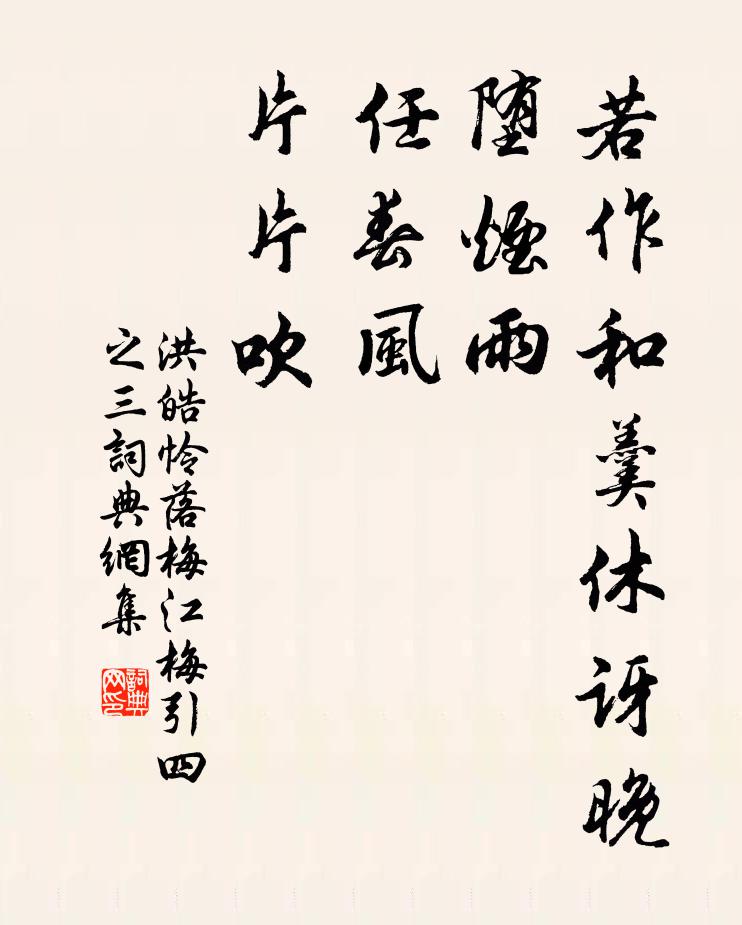 若作和羹休訝晚
堕煙雨
任春風
片片吹
洪皓怜落梅江梅引四
之三詞典網集
詞典
网印